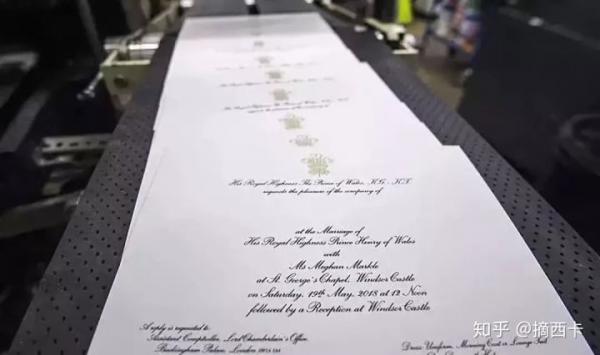 His Royal Highness The Prince of Wales, K.G., K.T.
requests the pleasure of the company of
at the Marriage of
His Royal Highness Prince Henry of Wales
with
Ms Meghan Markle
at St. George's Chapel, Windsor Castle
on Saturday, 19th May, 2018 at 12 Noon
followed by a Reception at Windsor Castle
A reply is requested to:
Assistant Comptroller, Lord Chamberlain's Office,
Buckingham Palace, London SW1A 1AA
Dress: Uniform, Morning Coat or Lounge Suit
知乎 @摘西卡